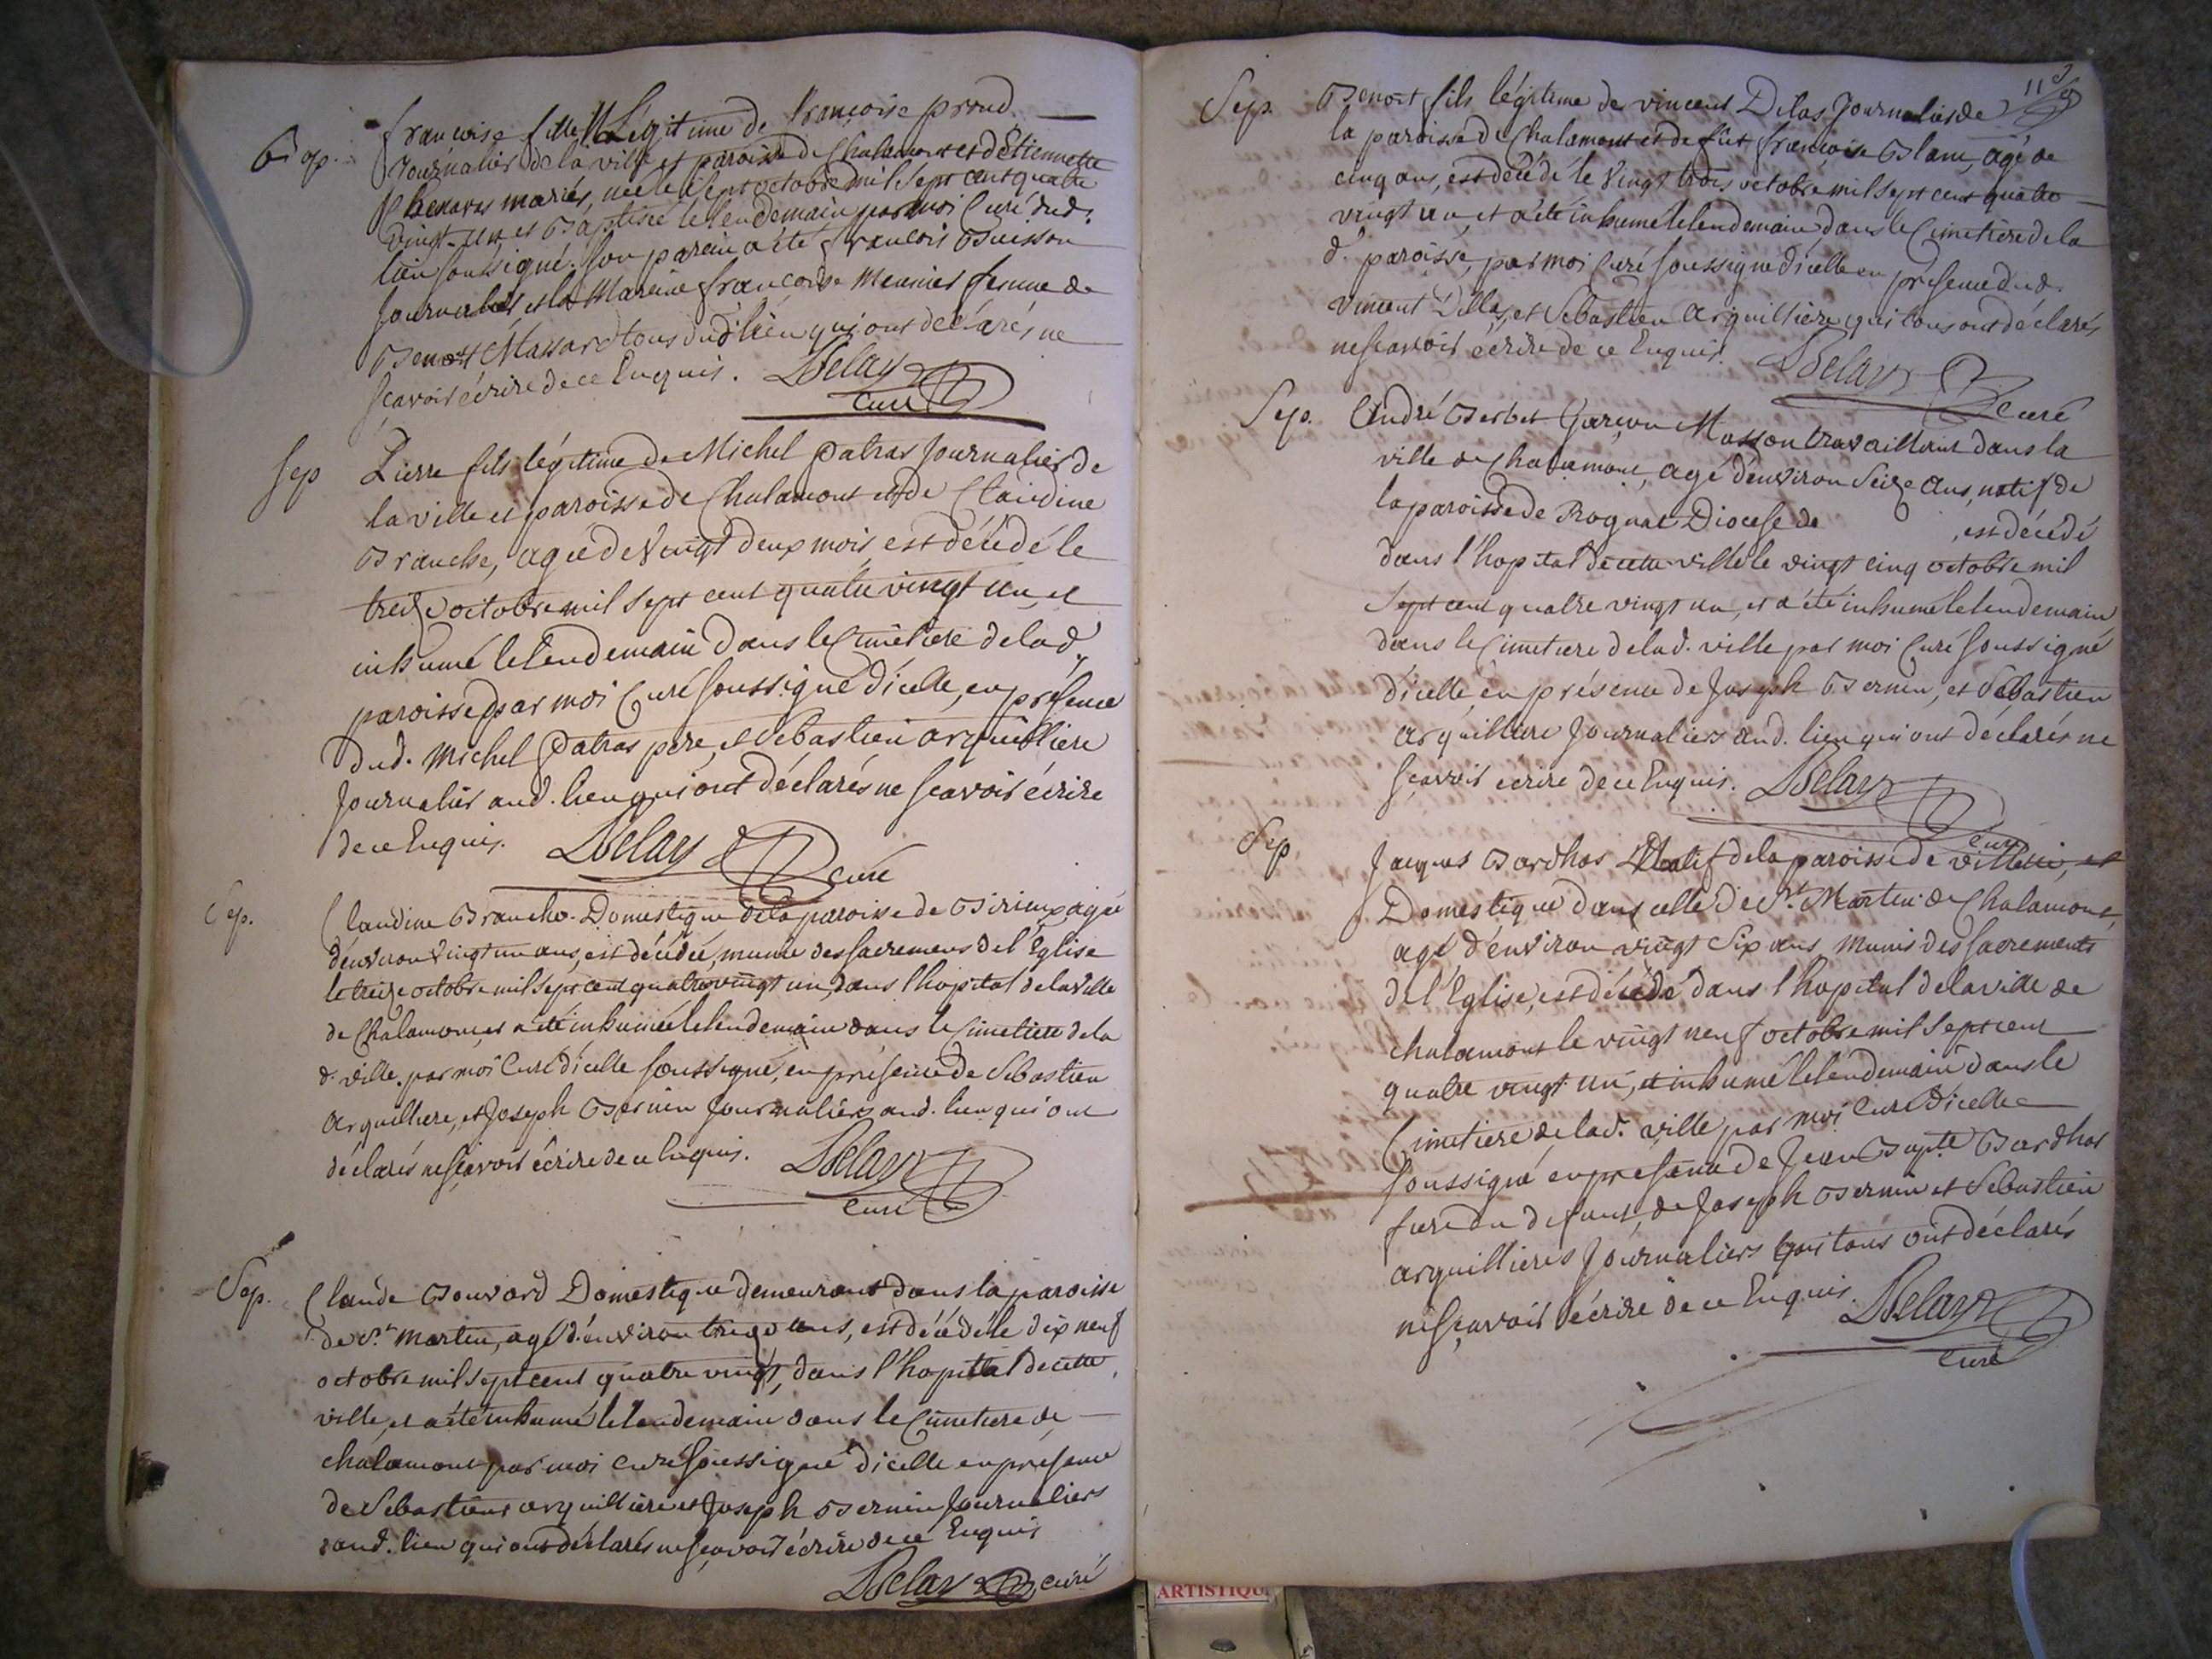 Bap. françoise fille Légitime de françoise proud
Journalier de la ville et paroisse de Chalamont et d'Etiennette
mariés, née le Sept octobre mil Sept cent quatre
vingt-un et Baptisée le lendemain par moi Curé dud.
lieu soussigné. Son parein a été françois Buisson
Journalier, et la Mareine françoise Meunier femme de
Benoit Massard tous dud. lieu qui ont déclarés ne
scavoir écrire de ce Enquis. Delay
curé
Sep Pierre fils légitime de Michel patras Journalier de
la ville et paroisse de Chalamont et de Claudine
Branche, agé de Vingt deux mois est décédé le
treize octobre mil Sept cent quatre vingt un, et
inhumé le lendemain dans le Cimetiere de la d.
paroisse par moi Curé soussigné d'icelle, en présence
dud. Michel patras pere, et Sebastien arquilliere
Journalier aud. lieu qui ont déclarés ne scavoir écrire
de ce Enquis. Delay
curé
Sep. Claudine Branche Domestique de la paroisse de Birieux agée
d'environ Vingt un ans, est décédée, munie des Sacremens de l'Eglise
le treize octobre mil Sept cent quatre vingt un, dans l'hopital de la Ville
de Chalamont et a été inhumée le lendemain dans le Cimetiere de la
d. ville par moi Curé d'icelle soussigné, en présence de Sebastien
arquilliere, et Joseph Bernin Journaliers aud. lieu qui ont
déclarés ne scavoir écrire de ce Enquis. Delay
curé
Sep. Claude Bouvard Domestique demeurant dans la paroisse
de St. Martin, agé d'environ treize ans, est décédé le dix neuf
octobre mil Sept cent quatre vingt, dans l'hopital de cette
ville, et a été inhumé le lendemain dans le Cimetiere de
chalamont par moi curé soussigné d'icelle en présence
de Sebastien arquilliere et Joseph Bernin Journaliers
aud. lieu qui ont déclarés ne scavoir écrire de ce Enquis
Delay curé
11
Sep. Benoit fils légitime de vincent Delas Journalier de
la paroisse de Chalamont et de füe françoise Blanc, agé de
cinq ans, est décédé le Vingt trois octobre mil Sept cent quatre
vingt un, et a été inhumé le lendemain dans le Cimetiere de la
d. paroisse, par moi Curé soussigné d'icelle en présence dud.
vincent Dellas, et Sebastien arquilliere qui tous ont déclarés
ne scavoir écrire de ce Enquis. Delay
curé
Sep. André Berbet Garçon Masson travaillant dans la
ville de Chalamont, agé d'environ Seize ans, natif de
la paroisse de Rognat Diocese de , est décédé
dans l'hopital de cette ville le vingt cinq octobre mil
Sept cent quatre vingt un, et a été inhumé le lendemain
dans le Cimetiere de la d. ville par moi Curé soussigné
d'icelle, en présence de Joseph Bernin, et Sebastien
arquilliere Journaliers aud. lieu qui ont déclarés ne
scavoir écrire de ce Enquis. Delay
curé
Sep Jacques Bardhos Natif de la paroisse de et
Domestique dans celle de St. Martin de Chalamont,
agé d'environ vingt Six ans munis des Sacrements
de l'Eglise, est décédé dans l'hopital de la ville de
chalamont le vingt neuf octobre mil Sept cent
quatre vingt un, et inhumé le lendemain dans le
Cimetiere de la d. ville par moi Curé d'icelle
soussigné en présence de Jean Bapte. Bardhos
frere du defunt, de Joseph Bernin et Sebastien
arquillieres Journaliers qui tous ont déclarés
ne scavoir écrire de ce Enquis. Delay
curé
ARTISTIQU